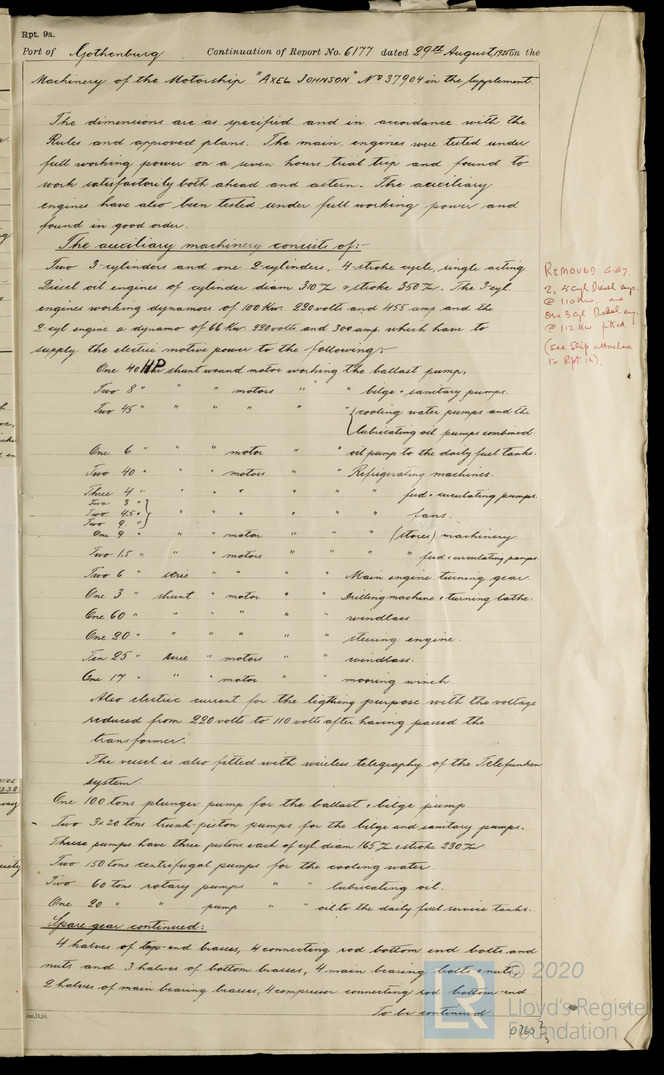 Rpt. 9a.
Port of Gothenburg Continuation of Report No. 6177 dated 29th August, 1925 on the
Machinery of the Motorship "AXEL JOHNSON" No 37904 in the Supplement.
The dimensions are as specified and in accordance with the
Rules and approved plans. The main engines were tested under
full working power on a seven hours trial trip and found to
work satisfactorily both ahead and astern. The auxiliary
engines have also been tested under full working power and
found in good order.
The auxiliary machinery consists of:-
Two 3-cylinders and one 2-cylinders, 4-stroke cycle, single acting
Diesel oil engines of cylinder diam 310 m/m & stroke 350 m/m. The 3-cyl.
engines working dynamos of 100 Kw. 220 volts and 455 amp and the
2-cyl engine a dynamo of 66 Kw. 220 volts and 300 amp. which have to
supply the electric motive power to the following:-
One 40 HP shunt wound motor working the ballast pump.
Two 8 " " " motors " " bilge & sanitary pumps.
Two 45 " " " " " " { cooling water pumps and the
lubricating oil pumps combined.
One 6 " " " motor " " oil pump to the daily fuel tanks.
Two 40 " " " motors " " Refrigerating machines.
Three 4 " " " " " " " fed & circulating pumps.
Two 3 " }
Two 4.5 " } " " " " " " fans.
Two 9 " }
One 9 " " " motor " " " (stores) machinery
Two 1.5 " " " motors " " " fed & circulating pumps
Two 6 " serie " " " " Main engine turning gear.
One 3 " shunt " motor " " Drilling machine & turning lathe.
One 60 " " " " " " windlass
One 20 " " " " " " steering engine.
Ten 25 " serie " motors " " windlass.
One 17 " " " motor " " mooring winch.
Also electric current for the ligthing purpose with the voltage
reduced from 220 volts to 110 volts after having passed the
transformer.
The vessel is also fitted with wireless telegraphy of the Telefunken
system.
One 100 tons plunger pump for the ballast & bilge pump
Two 3x20 tons trunk-piston pumps for the bilge and sanitary pumps.
These pumps have three pistons each of cyl diam 165 m/m & stroke 230 m/m
Two 150 tons centrefugal pumps for the cooling water.
Two 60 tons rotary pumps " " lubricating oil.
One 20 " " pump " " oil to the daily fuel service tanks.
Spare gear continued:
4 halves of top-end brasses, 4 connecting rod bottom end bolts and
nuts and 3 halves of bottom brasses, 4 main bearing bolts & nuts,
2 halves of main bearing brasses, 4 compressor connecting rod bottom-end
To be continued
REMOVED
2, 5 cyl Diesel eng.
@ 110 Kw. and
One 3 cyl Diesel eng.
@ 112 Kw fitted.
(see slip attached
to Rpt 1a)
© 2020
LR
Lloyd's Register
Foundation